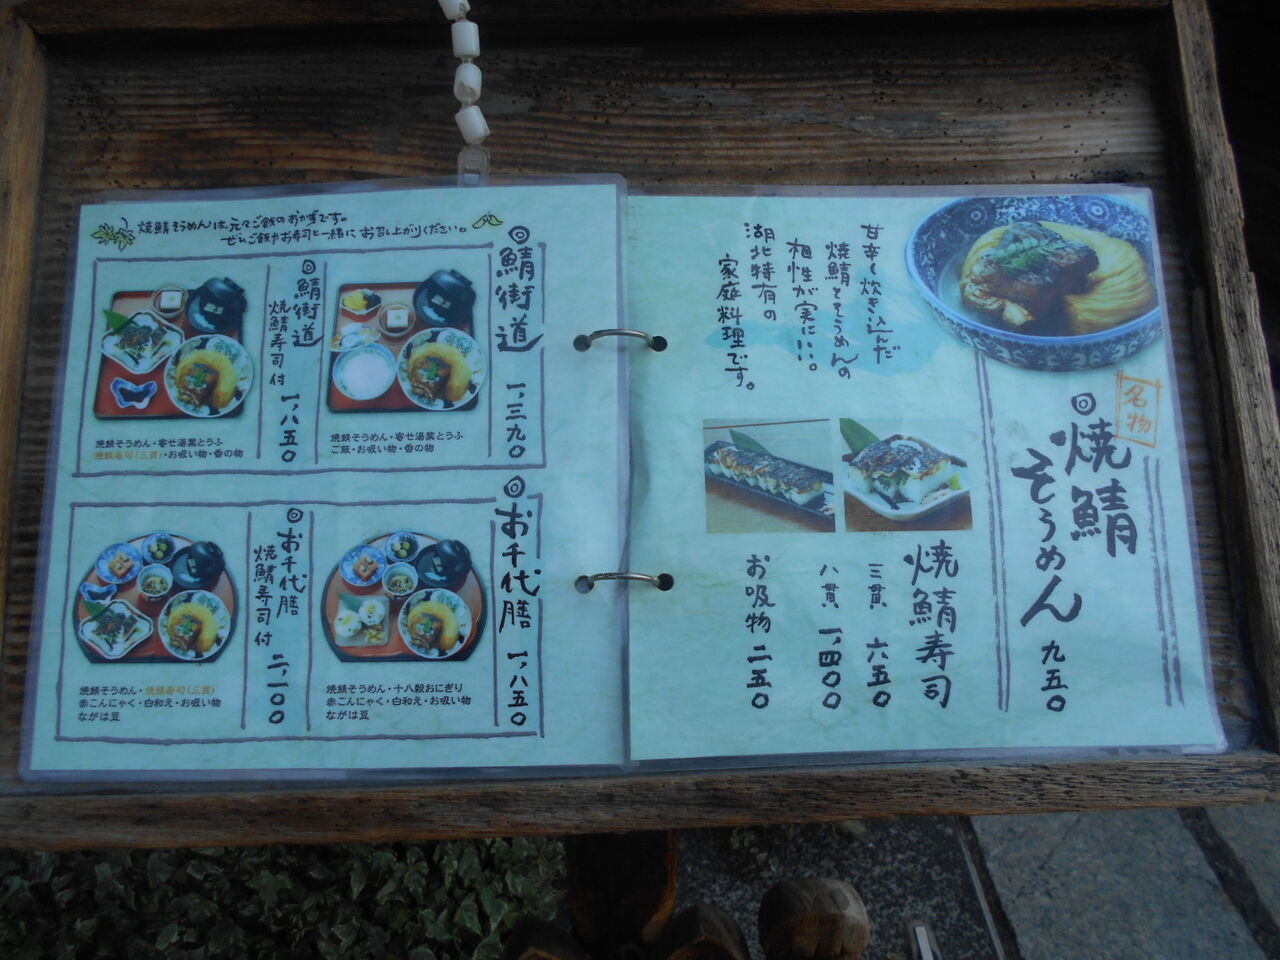 名物
焼鯖
そうめん
九五〇
甘辛く炊き込んだ
焼鯖とそうめんの
相性が実にいい。
湖北特有の
家庭料理です。
焼鯖寿司
三貫 六五〇
八貫 一、四〇〇
お吸物 二五〇
焼鯖そうめんは、元々ご飯のおかずです。
ぜひご飯やお寿司と一緒にお召し上がりください。
鯖街道 一、三九〇
焼鯖そうめん・寄せ湯葉とうふ
ご飯・お吸い物・香の物
鯖街道
焼鯖寿司付
一、八五〇
焼鯖そうめん・寄せ湯葉とうふ
焼鯖寿司(三貫)・お吸い物・香の物
お千代膳 一、八五〇
焼鯖そうめん・十八穀おにぎり
赤こんにゃく・白和え・お吸い物
ながは豆
お千代膳
焼鯖寿司付
二、一〇〇
焼鯖そうめん・焼鯖寿司(三貫)
赤こんにゃく・白和え・お吸い物
ながは豆